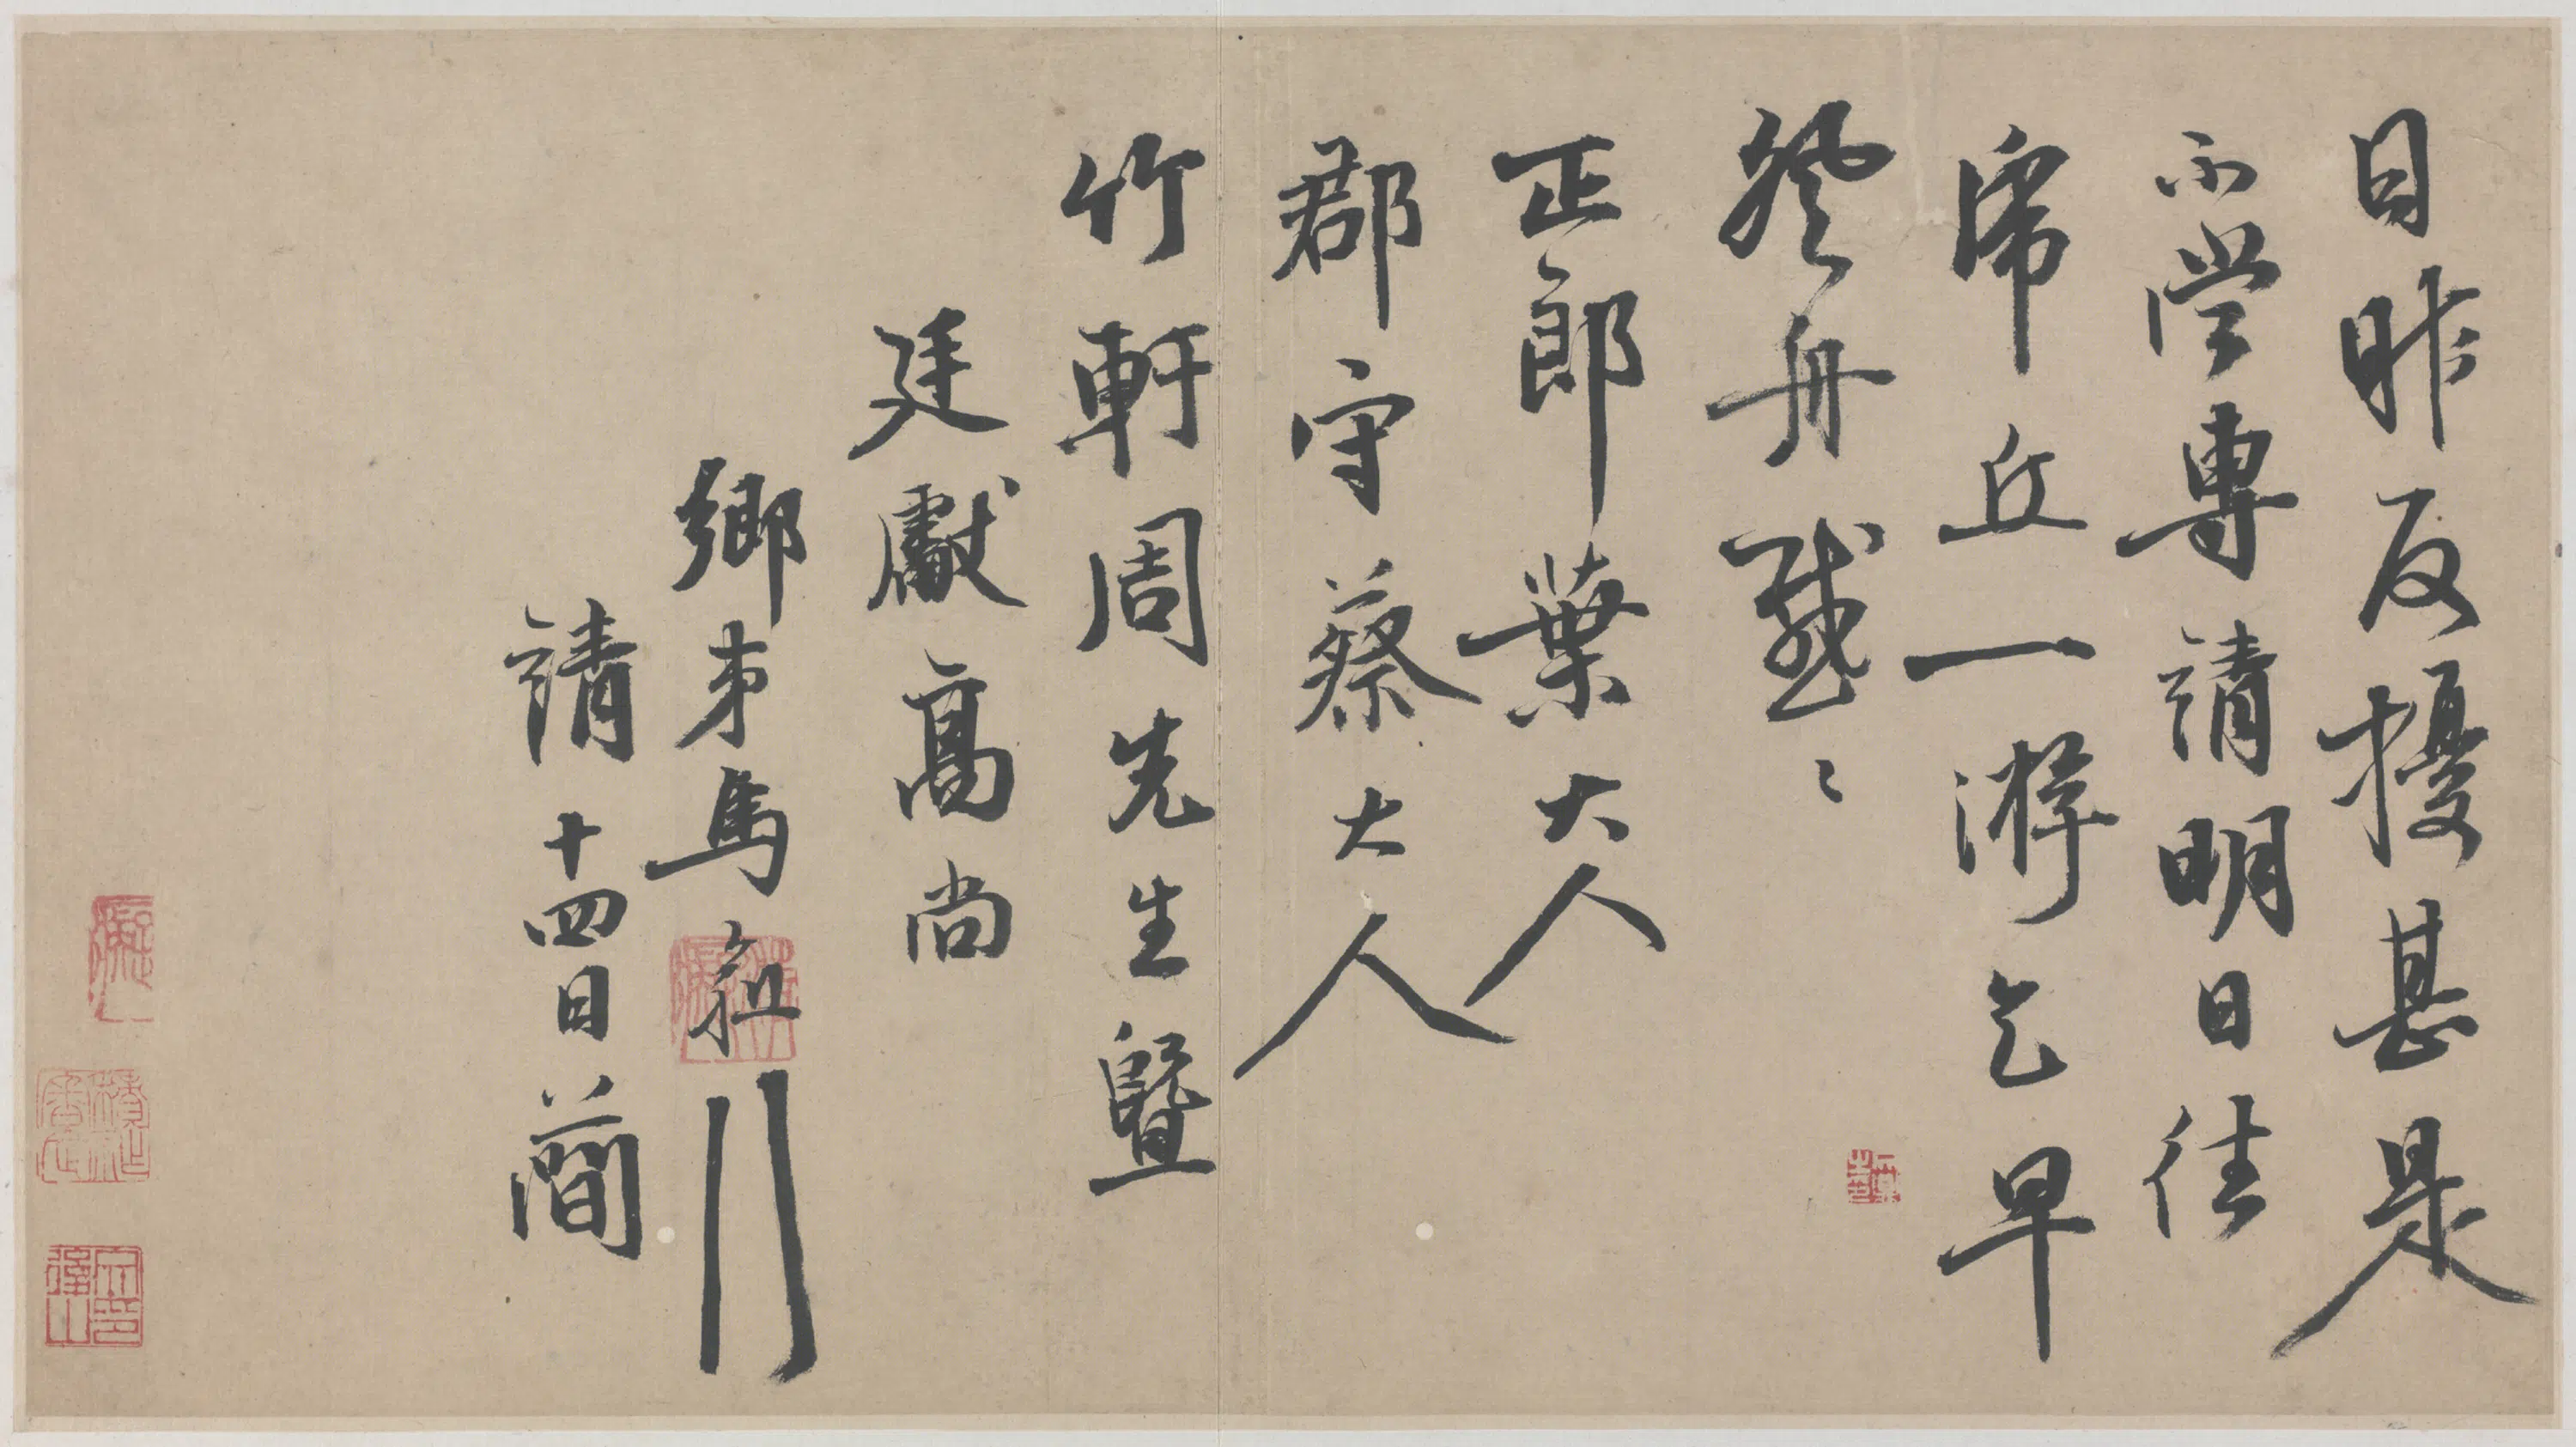 日昨反擾甚是
不當專請明日往
虎丘一游乞早
登舟感〻
正郎葉大人
郡守蔡大人
竹軒周先生暨
廷獻高尚
鄉末馬愈
請十四日簡